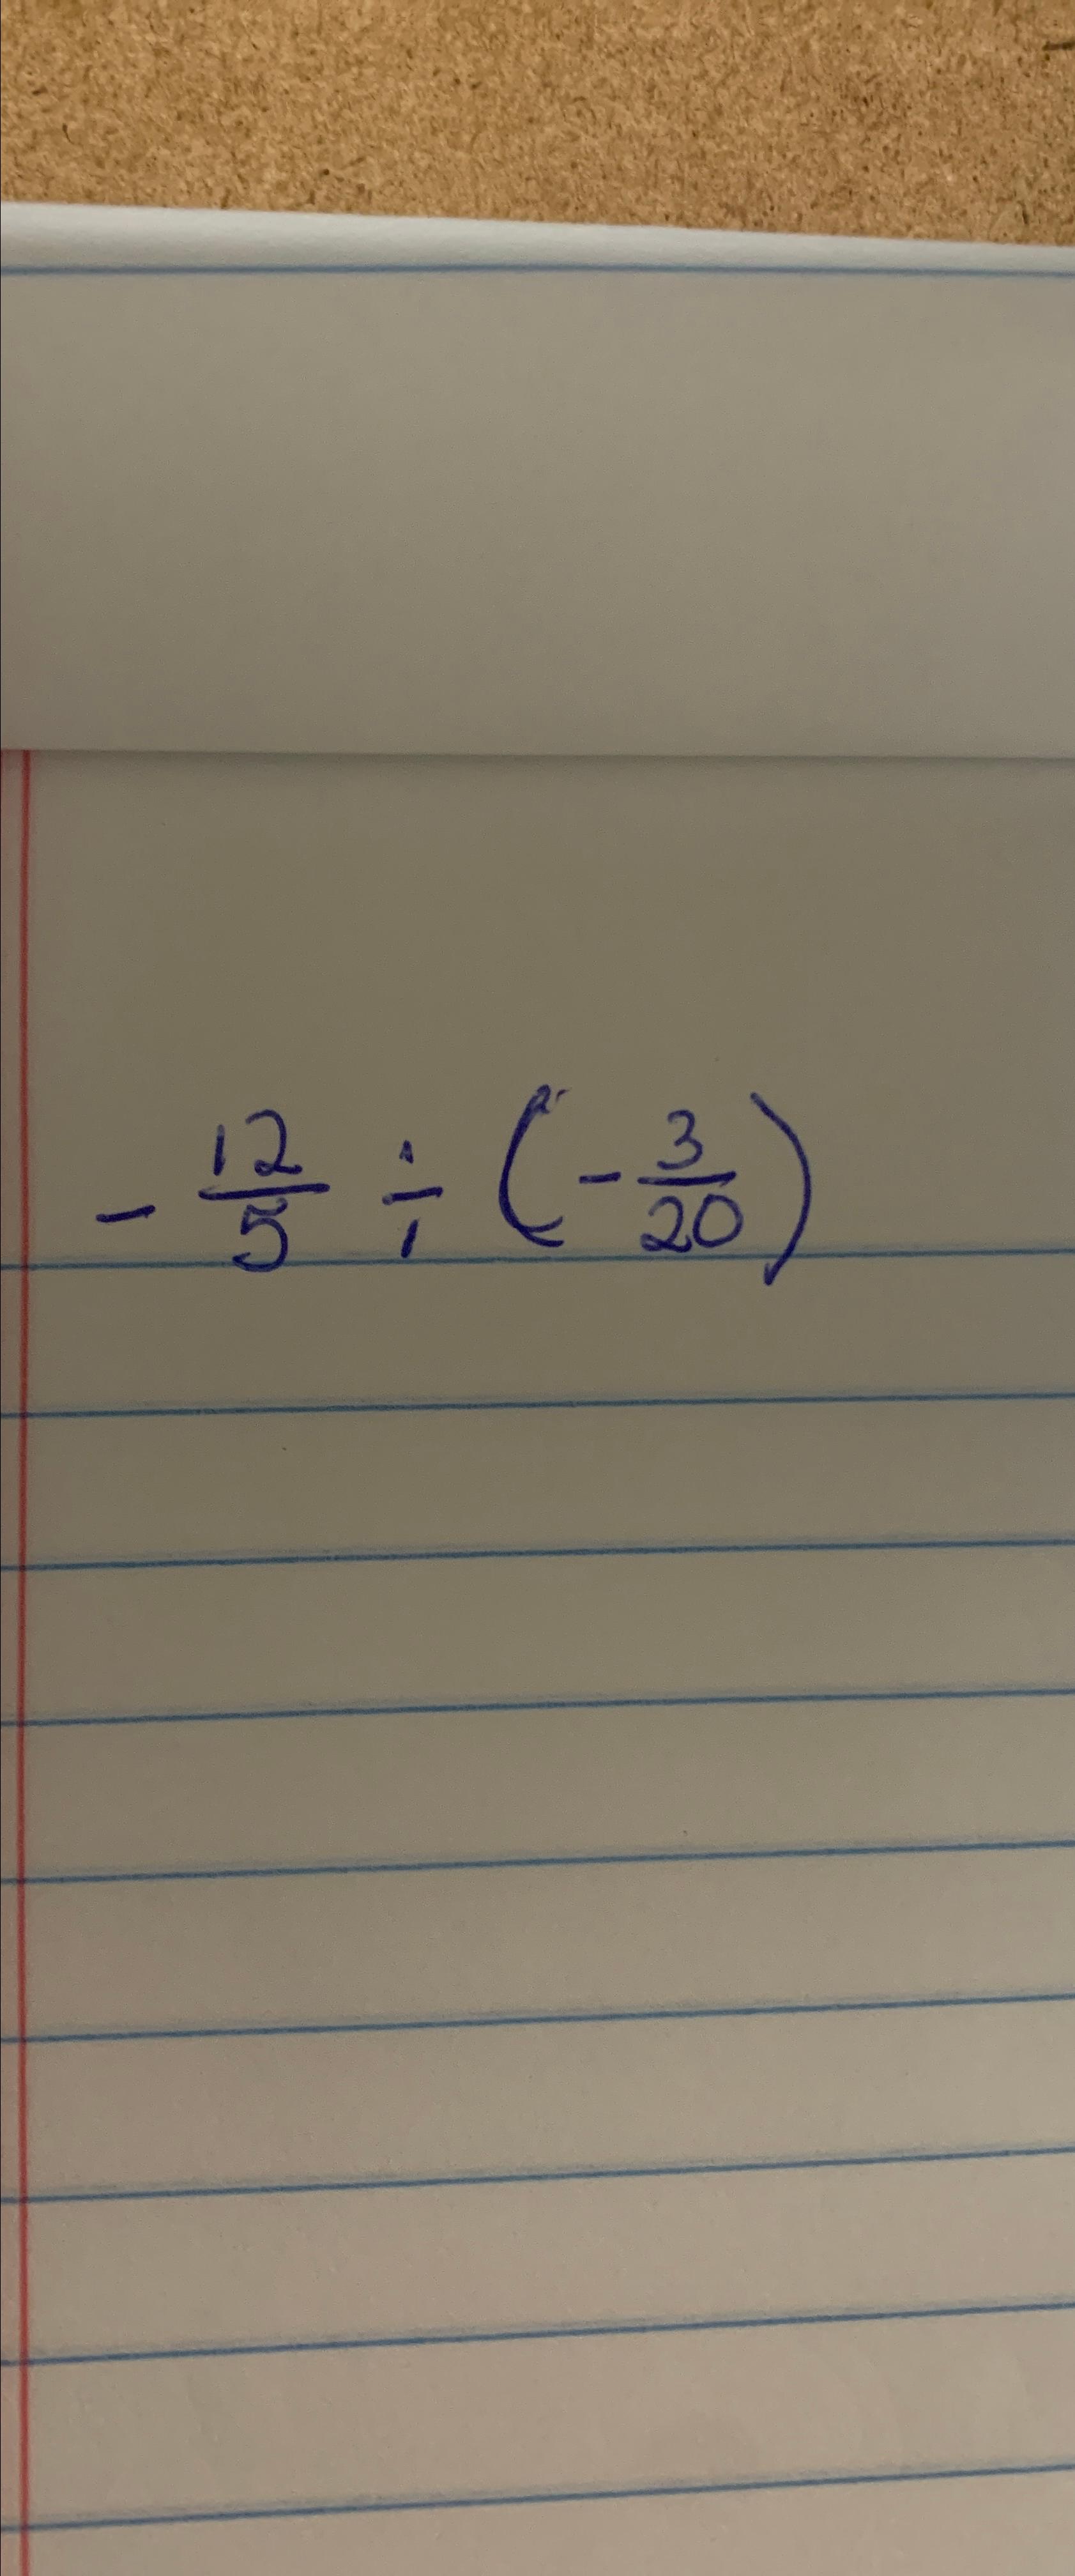 - 12/5 ÷ (- 3/20)